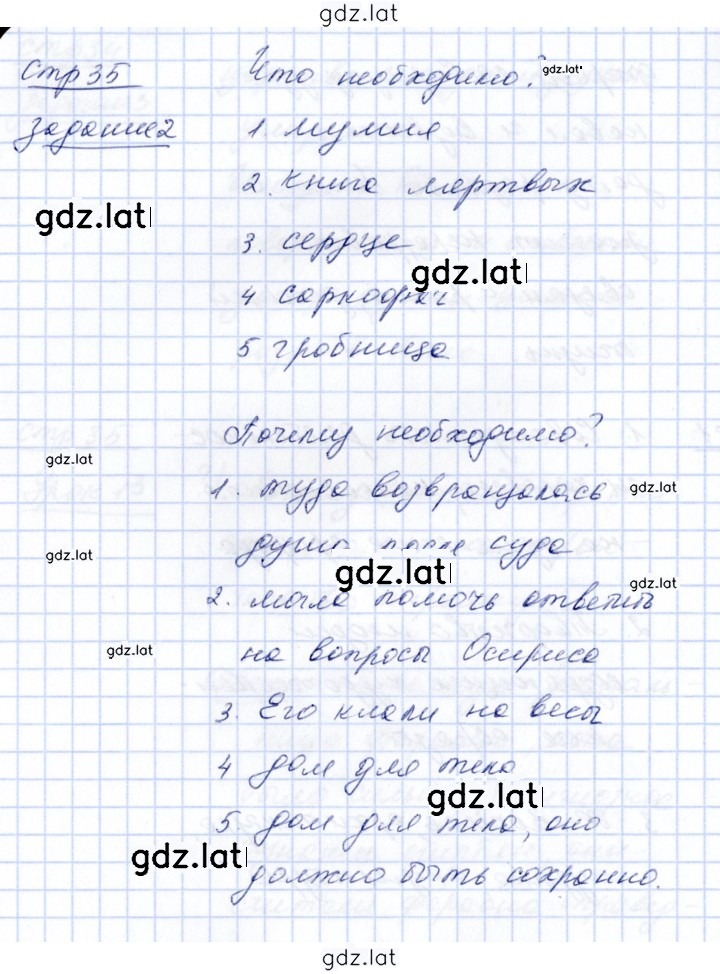 gdz.lat
Стр 35 Что необходимо? gdz.lat
Задание 2 1. мумия
2. книга мертвых
gdz.lat
3. сердце
gdz.lat
4 саркофаг
5 гробница
Почему необходимо?
gdz.lat
1. туда возвращалась gdz.lat
gdz.lat душа после суда
gdz.lat gdz.lat
2. могла помочь ответить
gdz.lat на вопросы Осириса
3. Его клали на весы
4 дом для тела
gdz.lat
5. дом для тела, оно
gdz.lat должно быть сохранно.
gdz.lat